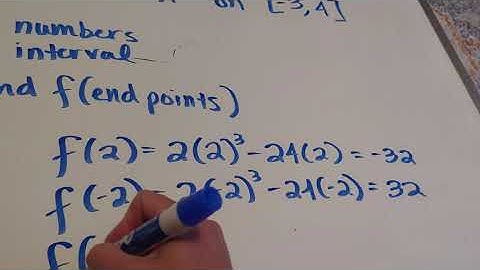 on [-3,4]
numbers
interval
nd f(end points)
f(2) = 2(2)³-24(2) = -32
f(-2) = 2(-2)³ - 24(-2) = 32
f(